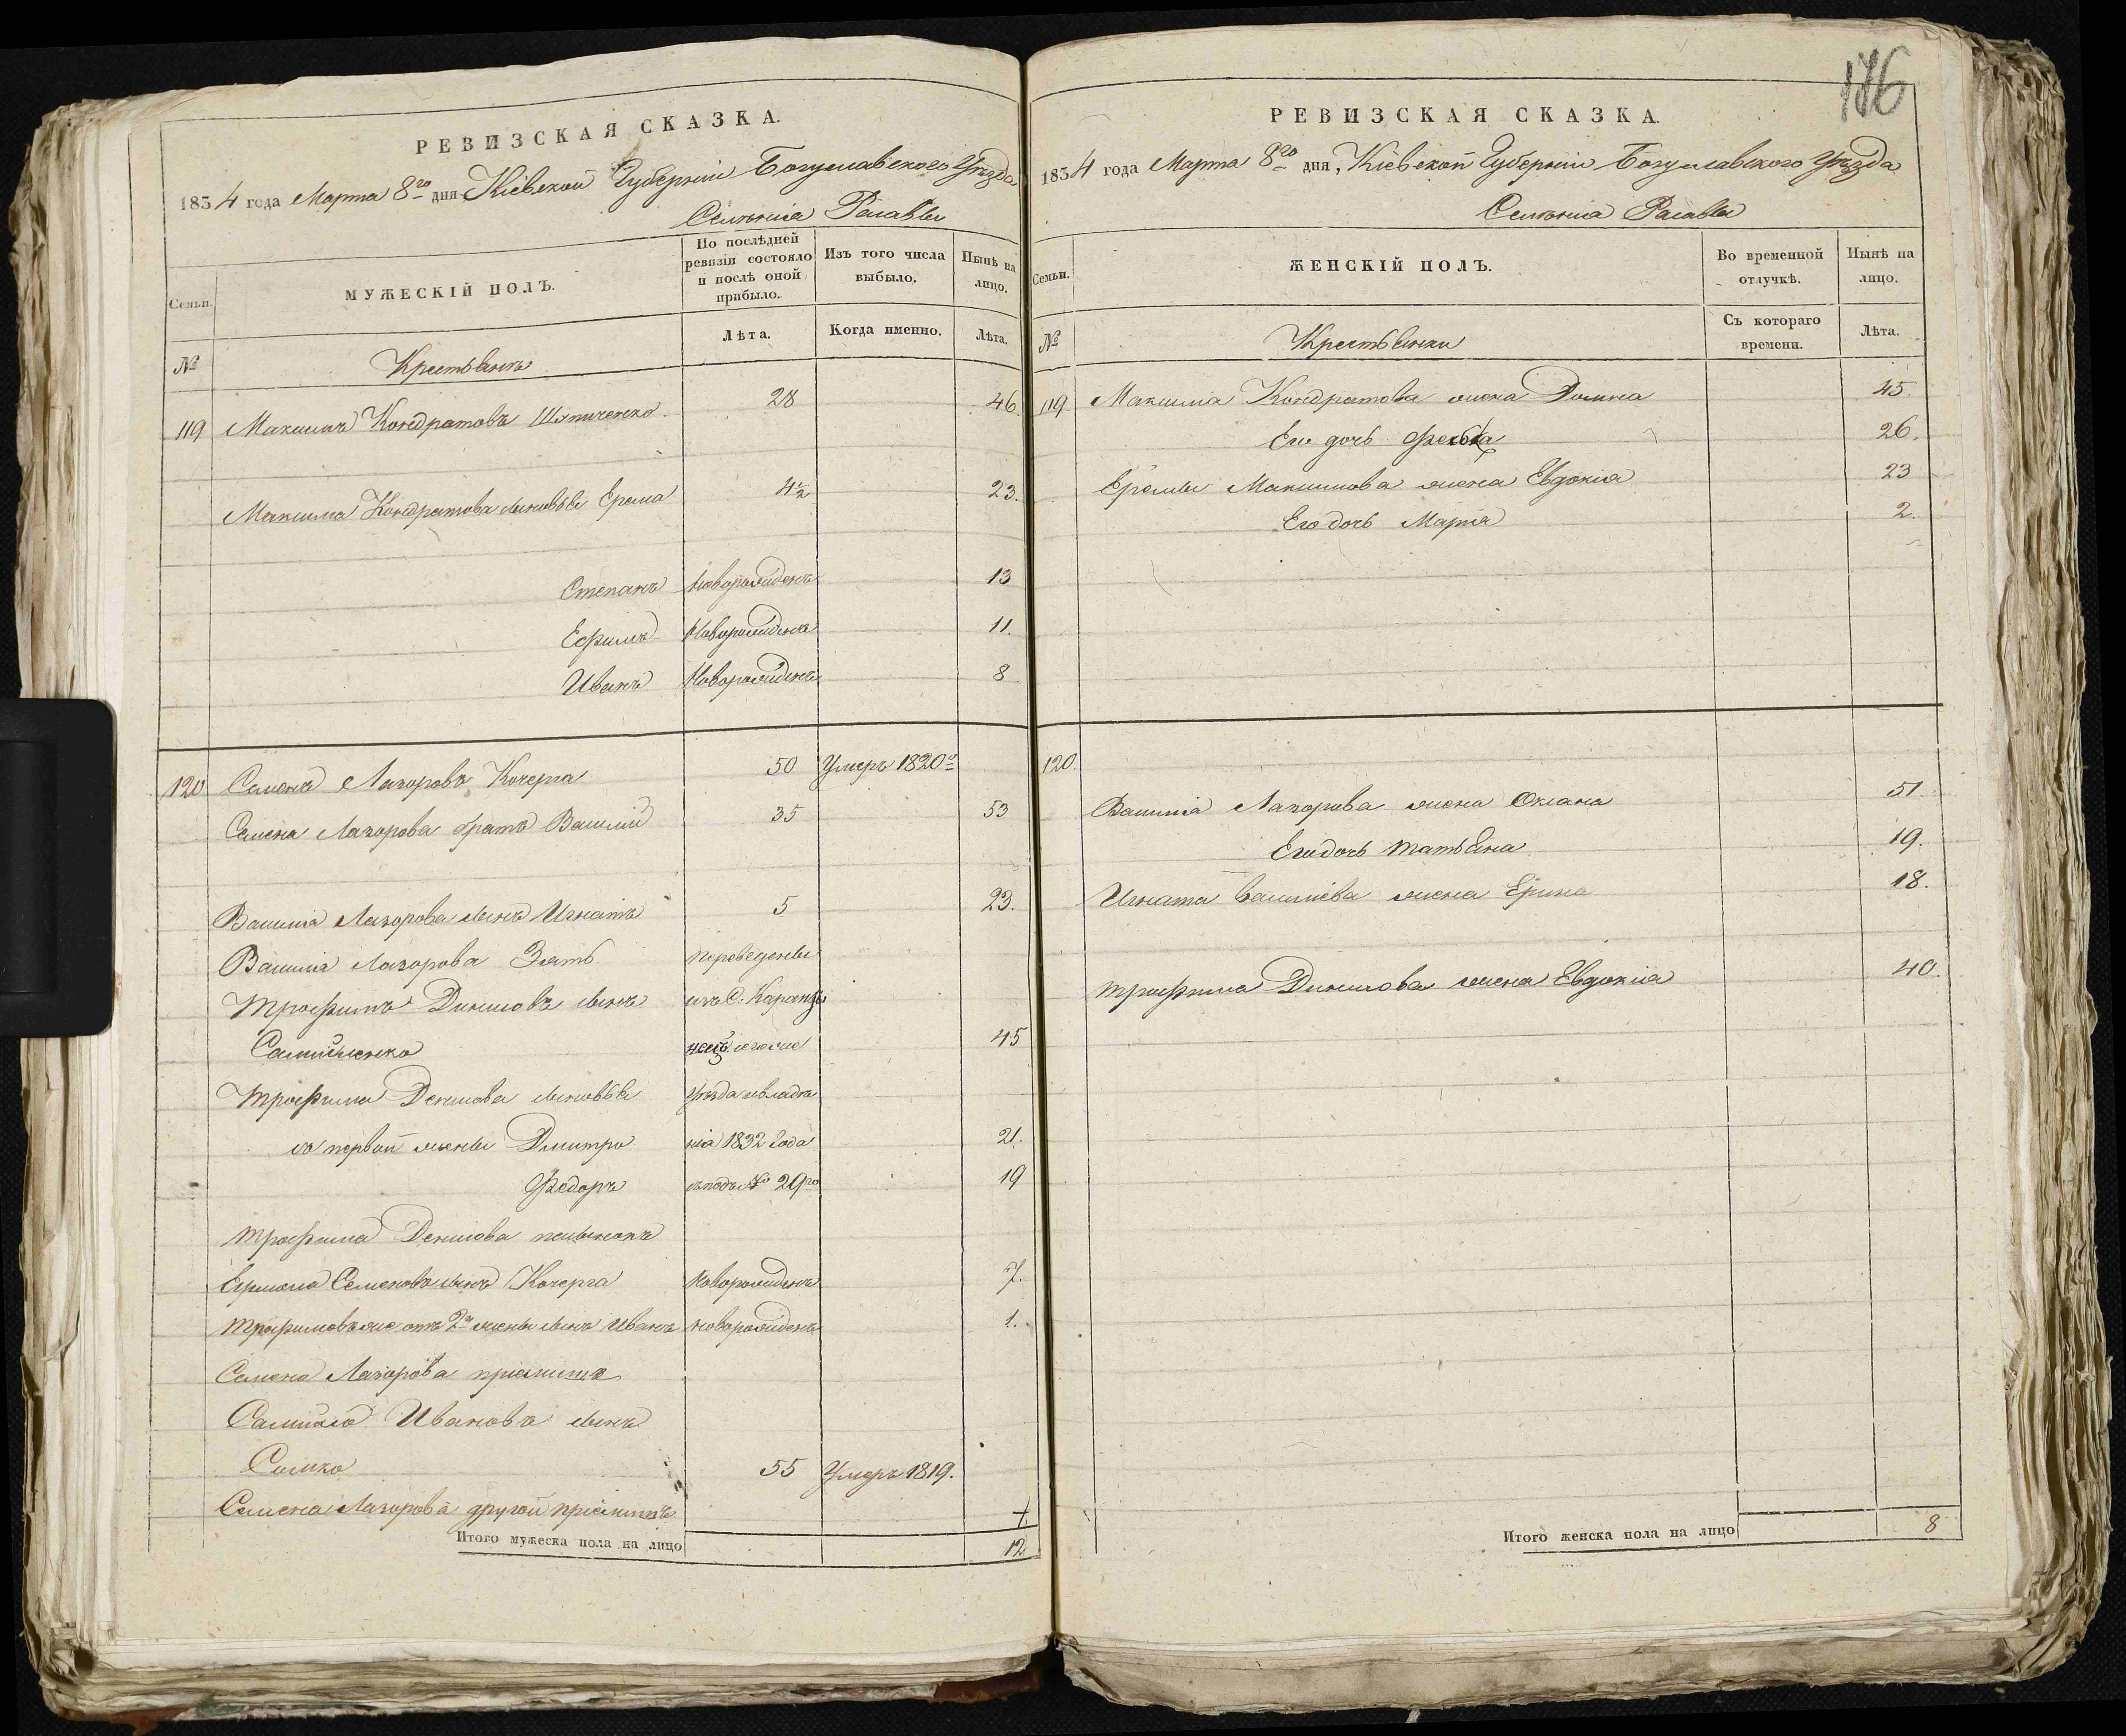 РЕВИЗСКАЯ СКАЗКА.
1834 года Марта 8го дня Кіевской Губерніи Богуславского Уѣзда
Селѣнія Расавы
Семьи.
МУЖЕСКІЙ ПОЛЪ.
По послѣдней ревизіи состояло и послѣ оной прибыло.
Изъ того числа выбыло.
Нынѣ на лицо.
№
Крестьянъ
Лѣта.
Когда именно.
Лѣта.
119 Максимъ Кондратовъ 28 46
Максима Кондратова сыновья Ерема 4½ 23.
Степанъ новорожденъ 13
Ефимъ Новорожденъ 11.
Иванъ Новорожденъ 8
120 Семенъ Лазоровъ Кочерга 50 Умеръ 1820го
Семена Лазорова братъ Василій 35 53
Василія Лазорова сынъ Игнатъ 5 23.
Василія Лазорова Зять переведены
Трофимъ Динисовъ сынъ изъ С.
Самойленко 45
Трофима Денисова сыновья уѣзда ивладѣ
со первой жены Дмитро нія 1832 Года 21.
Федоръ съподъ № 29го 19
Трофима Денисова пасынокъ
Ермола Семеновъ сынъ Кочерга Новорожденъ 7.
Трофимовъ же отъ 2й жены сынъ Иванъ новорожденъ 1.
Семена Лазорова пріемишъ
Самойло Ивановъ сынъ
Сошко 55 Умеръ 1819.
Семена Лазорова другой пріемишъ
Итого мужеска пола на лицо 12
176
РЕВИЗСКАЯ СКАЗКА.
1834 года Марта 8го дня, Кіевской Губерніи Богуславского Уѣзда
Селѣнія Расавы
Семьи.
ЖЕНСКІЙ ПОЛЪ.
Во временной отлучкѣ.
Нынѣ на лицо.
№
Крестьянки
Съ котораго времени.
Лѣта.
119 Максима Кондратова жена Домна 45.
Его дочь 26.
Еремы Максимова жена Евдокія 23
Его дочь Марія 2.
120.
Василія Лазорова жена Оксана 51.
Его дочь Татьяна 19.
Игната Василіева жена Ерина 18.
Трофима Динисова жена Евдокія 40.
Итого женска пола на лицо 8